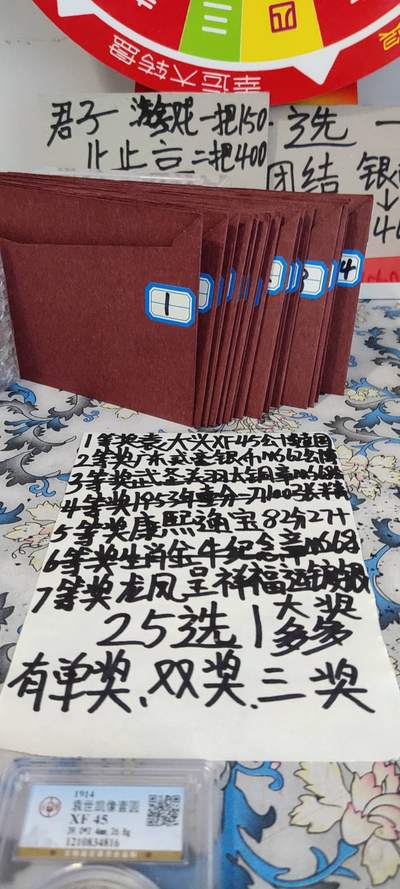 四
幸运大转盘
君子 游戏一把150
二把400
选一
团结 银
1
4
1等奖袁大头XF45公博直图
2等奖广东武圣银币MS62公博
3等奖武圣关羽大铜章MS68
4等奖1953年壹分一刀100张
5等奖康熙通宝82分27
6等奖生肖金牛纪念章MS68
7等奖龙凤呈祥福运
25选1大奖多多
有单奖、双奖、三奖
1914
袁世凯像壹圆
XF 45
1210834816